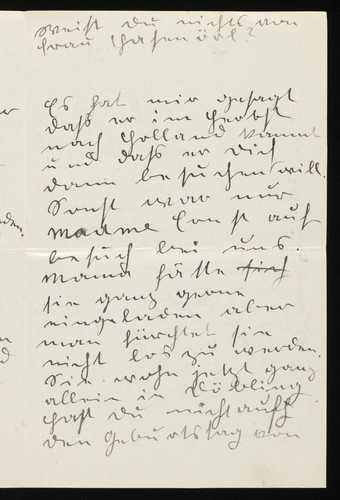 Weist du nichts von
Frau Hasenörl?
Es hat mir gesagt
daß er im Herbst
nach Holland kommt
und daß er dich
dann besuchen will.
Sonst war nur
Madme Ernst auf
besuch bei uns.
Mama hätte
sie ganz gerne
eingeladen aber
man fürchtet sie
nicht los zu werden.
Sie wohn jetzt ganz
allein in Döbling.
Hast du nicht auf
den Geburtstag von